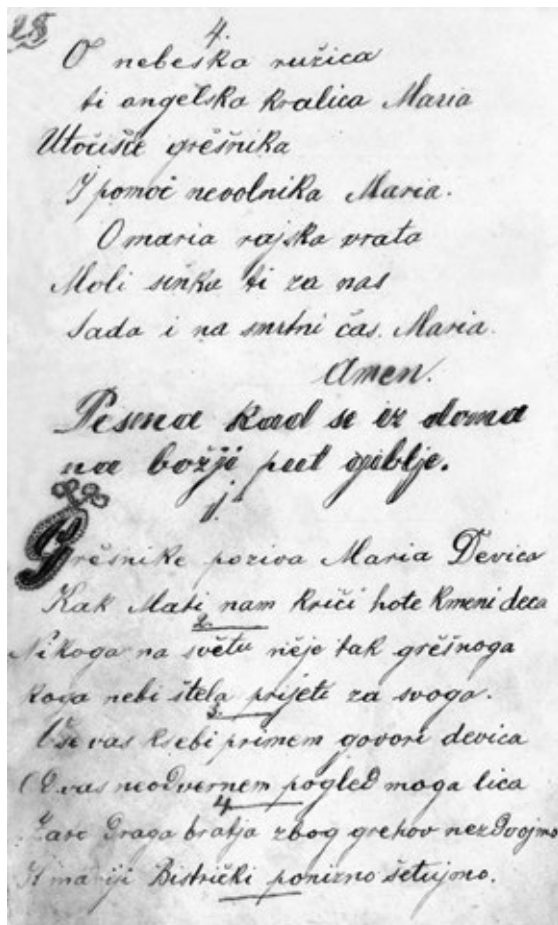 28
4.
O nebeska ružica
ti angelska kralica Maria
Utočište grěšnika
I pomoć nevolnika Maria.
O maria rajska vrata
Moli sinka ti za nas
Sada i na smrtni čas. Maria.
Amen.
Pesma kad se iz doma
na božji put giblje.
1.
Grěšnike poziva Maria Devica
Kak Mati nam kriči hote kmeni deca
2.
Nikoga na světu něje tak grěšnoga
koga nebi štela prijeti za svoga.
3.
Vse vas ksebi primem govori devica
Od vas neodvernem pogled moga lica
4.
Zato Draga bratja zbog grehov nezdvojmo
K mariji Bistrički ponizno šetujmo.